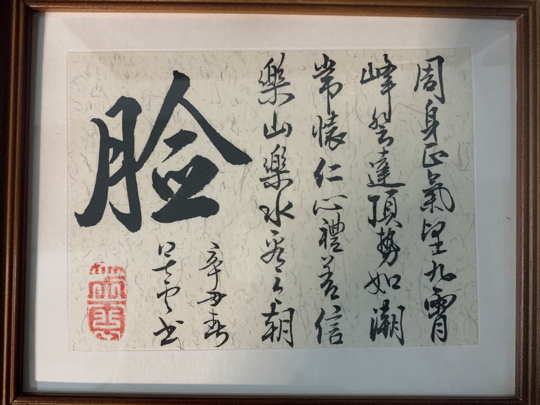 周身正氣望九霄
峰登達頂勢如潮
常懷仁心禮善信
樂山樂水看今朝
脸
辛丑春
云书